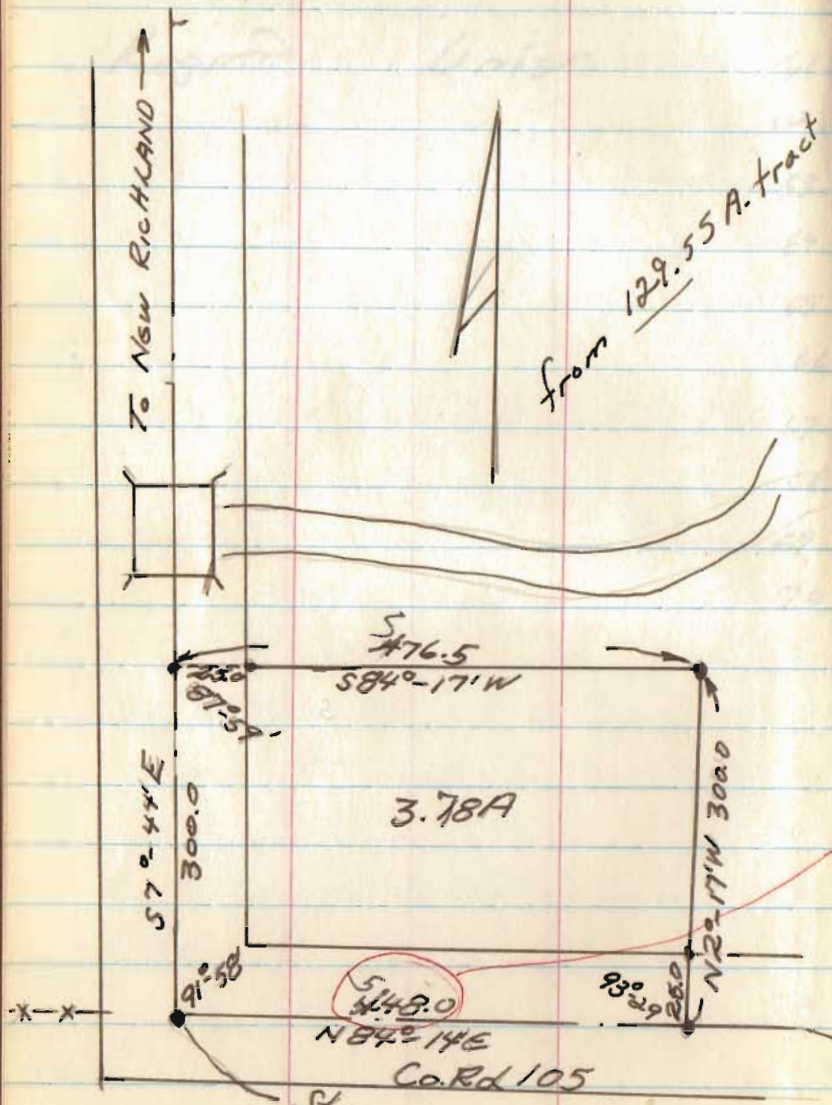 To New RichLAND →
from 129.55 A. tract
576.5
S84°-17'W
25.0
87°-59'
S7°-44'E
300.0
3.78A
N2°-17'W 300.0
91°-58'
548.0
93°-29
25.0
N84°-14'E
-x-x-
Co. Rd 105